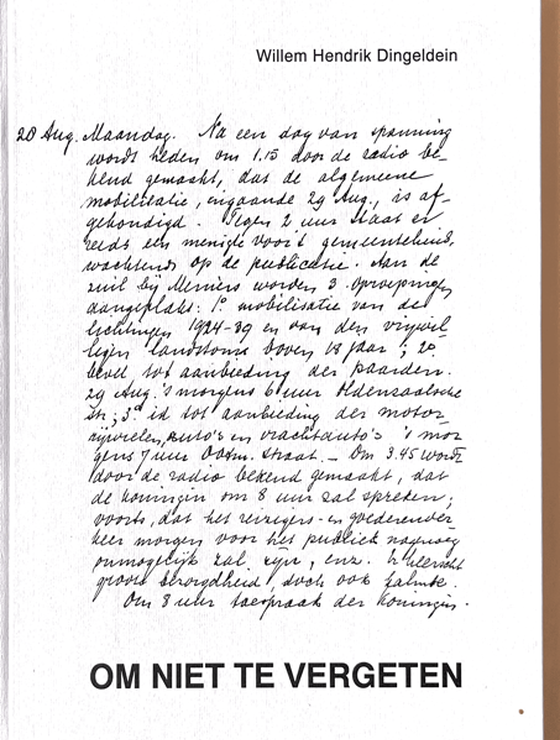 Willem Hendrik Dingeldein
28 Aug. Maandag. Na een dag van spanning
wordt heden om 1.15 door de radio be-
kend gemaakt, dat de algemeene
mobilisatie, ingaande 29 Aug., is af-
gekondigd. Tegen 2 uur staat er
reeds een menigte voor 't gemeentehuis,
wachtend op de publicatie. Aan de
zuil bij Meniers worden 3 oproepingen
aangeplakt: 1º mobilisatie van de
lichtingen 1924-39 en van den vrijwil-
ligen landstorm boven 18 jaar; 2º
bevel tot aanbieding der paarden.
29 Aug. 's morgens 6 uur Oldenzaalsche
str.; 3º id tot aanbieding der motor-
rijwielen, auto's en vrachtauto's 's mor
gens 7 uur Ootm. straat. - Om 3.45 wordt
door de radio bekend gemaakt, dat
de koningin om 8 uur zal spreken;
voorts, dat het reizigers- en goederenver-
keer morgen voor het publiek nagenoeg
onmogelijk zal zijn, enz. Er heerscht
groote bezorgdheid, doch ook kalmte.
Om 8 uur toespraak der Koningin.
OM NIET TE VERGETEN